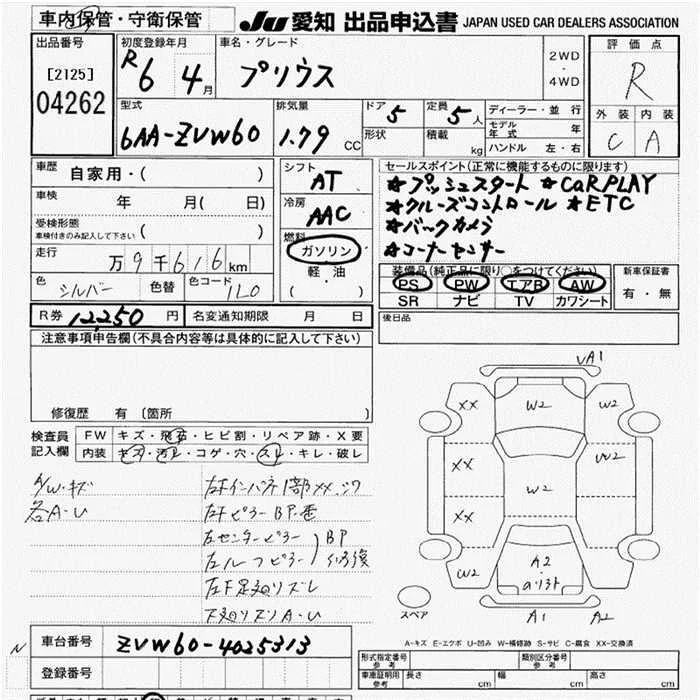 車内保管・守衛保管 JU 愛知 出品申込書 JAPAN USED CAR DEALERS ASSOCIATION
出品番号
[2125]
04262
初度登録年月
R6 4月
車名・グレード
プリウス
2WD
・
4WD
評価点
R
外装 内装
C A
型式
6AA-ZVW60
排気量
1.79 CC
ドア 5
形状
定員 5人
積載 kg
ディーラー・並行
モデル年式 年
ハンドル 左・右
車歴 自家用・( )
車検 年 月( 日)
受検形態
車検付きのみ記入して下さい ( )
走行 万9千616km
色 シルバー 色替 色コード 1L0
シフト
AT
冷房
AAC
燃料
ガソリン
軽油
( ・ )
セールスポイント(正常に機能するものに限ります)
★プッシュスタート ★CaRPLAY
★クルーズコントロール ★ETC
★バックカメラ
★コーナーセンサー
装備品(純正品に限り○をつけてください)
PS PW エアB AW
SR ナビ TV カワシート
新車保証書
有・無
R券 12,250円 名変通知期限 月 日
後日品
注意事項申告欄(不具合内容等は具体的に記入して下さい)
修復歴 有 〔箇所 〕
検査員
記入欄
FW キズ・飛石・ヒビ割・リペア跡・X要
内装 キズ・汚レ・コゲ・穴・スレ・キレ・破レ
A/W・キズ
各A-U
左センターピラー
BP
修復
UA1
XX W2 W2
XX W2
W2
XX
W2 A2
A1 A2
スペア
A-キズ E-エクボ U-凹み W-補修跡 S-サビ C-腐食 XX-交換済
N
車台番号 ZVW60-4025313
登録番号
形式指定番号
参考
類別区分番号
参考
車庫証明用
参考
長さ cm 幅 cm 高さ cm